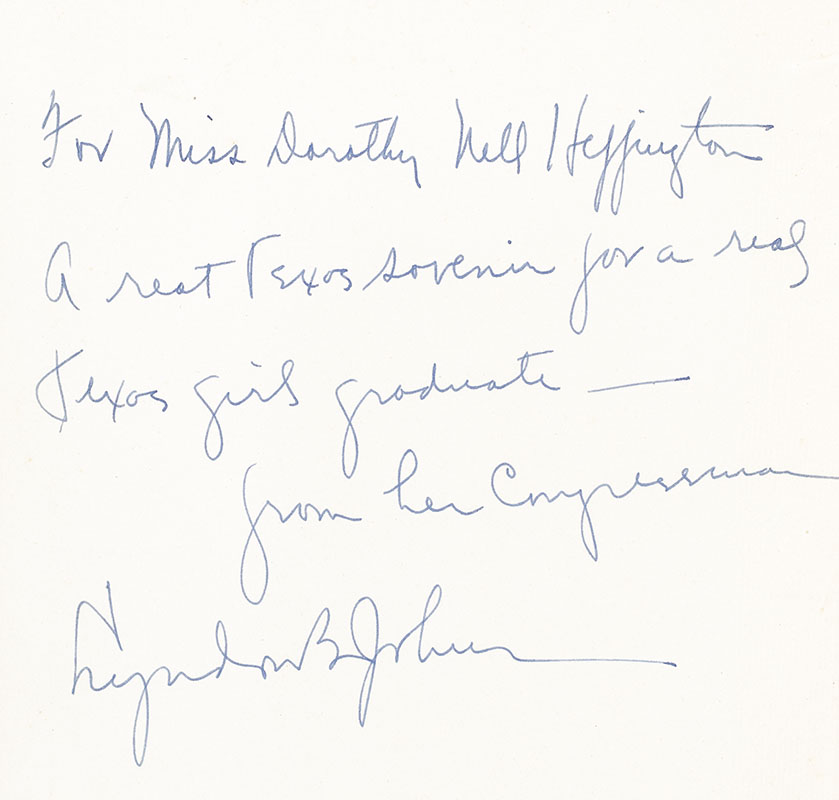 For Miss Dorothy Nell Heffington
A reat Texas sovenir for a real
Texas girl graduate —
from her Congressman
Lyndon B Johnson